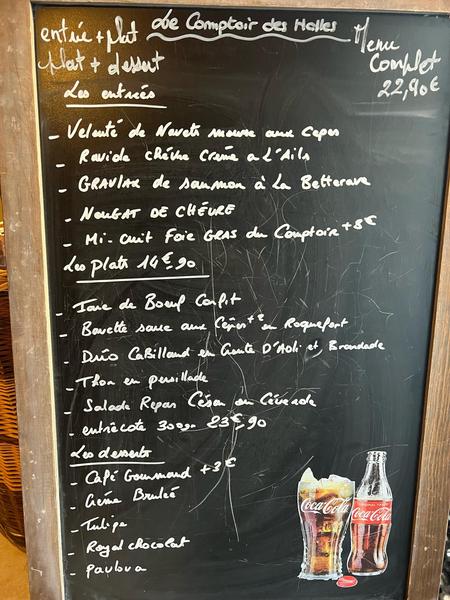 Le Comptoir des Halles
entrée + plat
plat + dessert
Menu
Complet
22,90€
Les entrées
- Velouté de Navets mousse aux Cepes
- Raviole chèvre Creme a L'Ail
- GRAVLAX de saumon à La Betterave
- NOUGAT DE CHÉVRE
- Mi-cuit Foie GRAS du Comptoir +8€
Les plats 14€90
- Joue de Boeuf Confit
- Bavette sauce aux Cèpes +2 ou Roquefort
- Duo CaBillaud en Croute D'Aoli et Brandade
- Thon en persillade
- Salade Repas César ou Cévenole
- entrecote 300gr 23€,90
Les desserts
- Café Gourmand +3€
- Crème Brulée
- Tulipe
- Royal chocolat
- pavlova
Coca-Cola
Coca-Cola